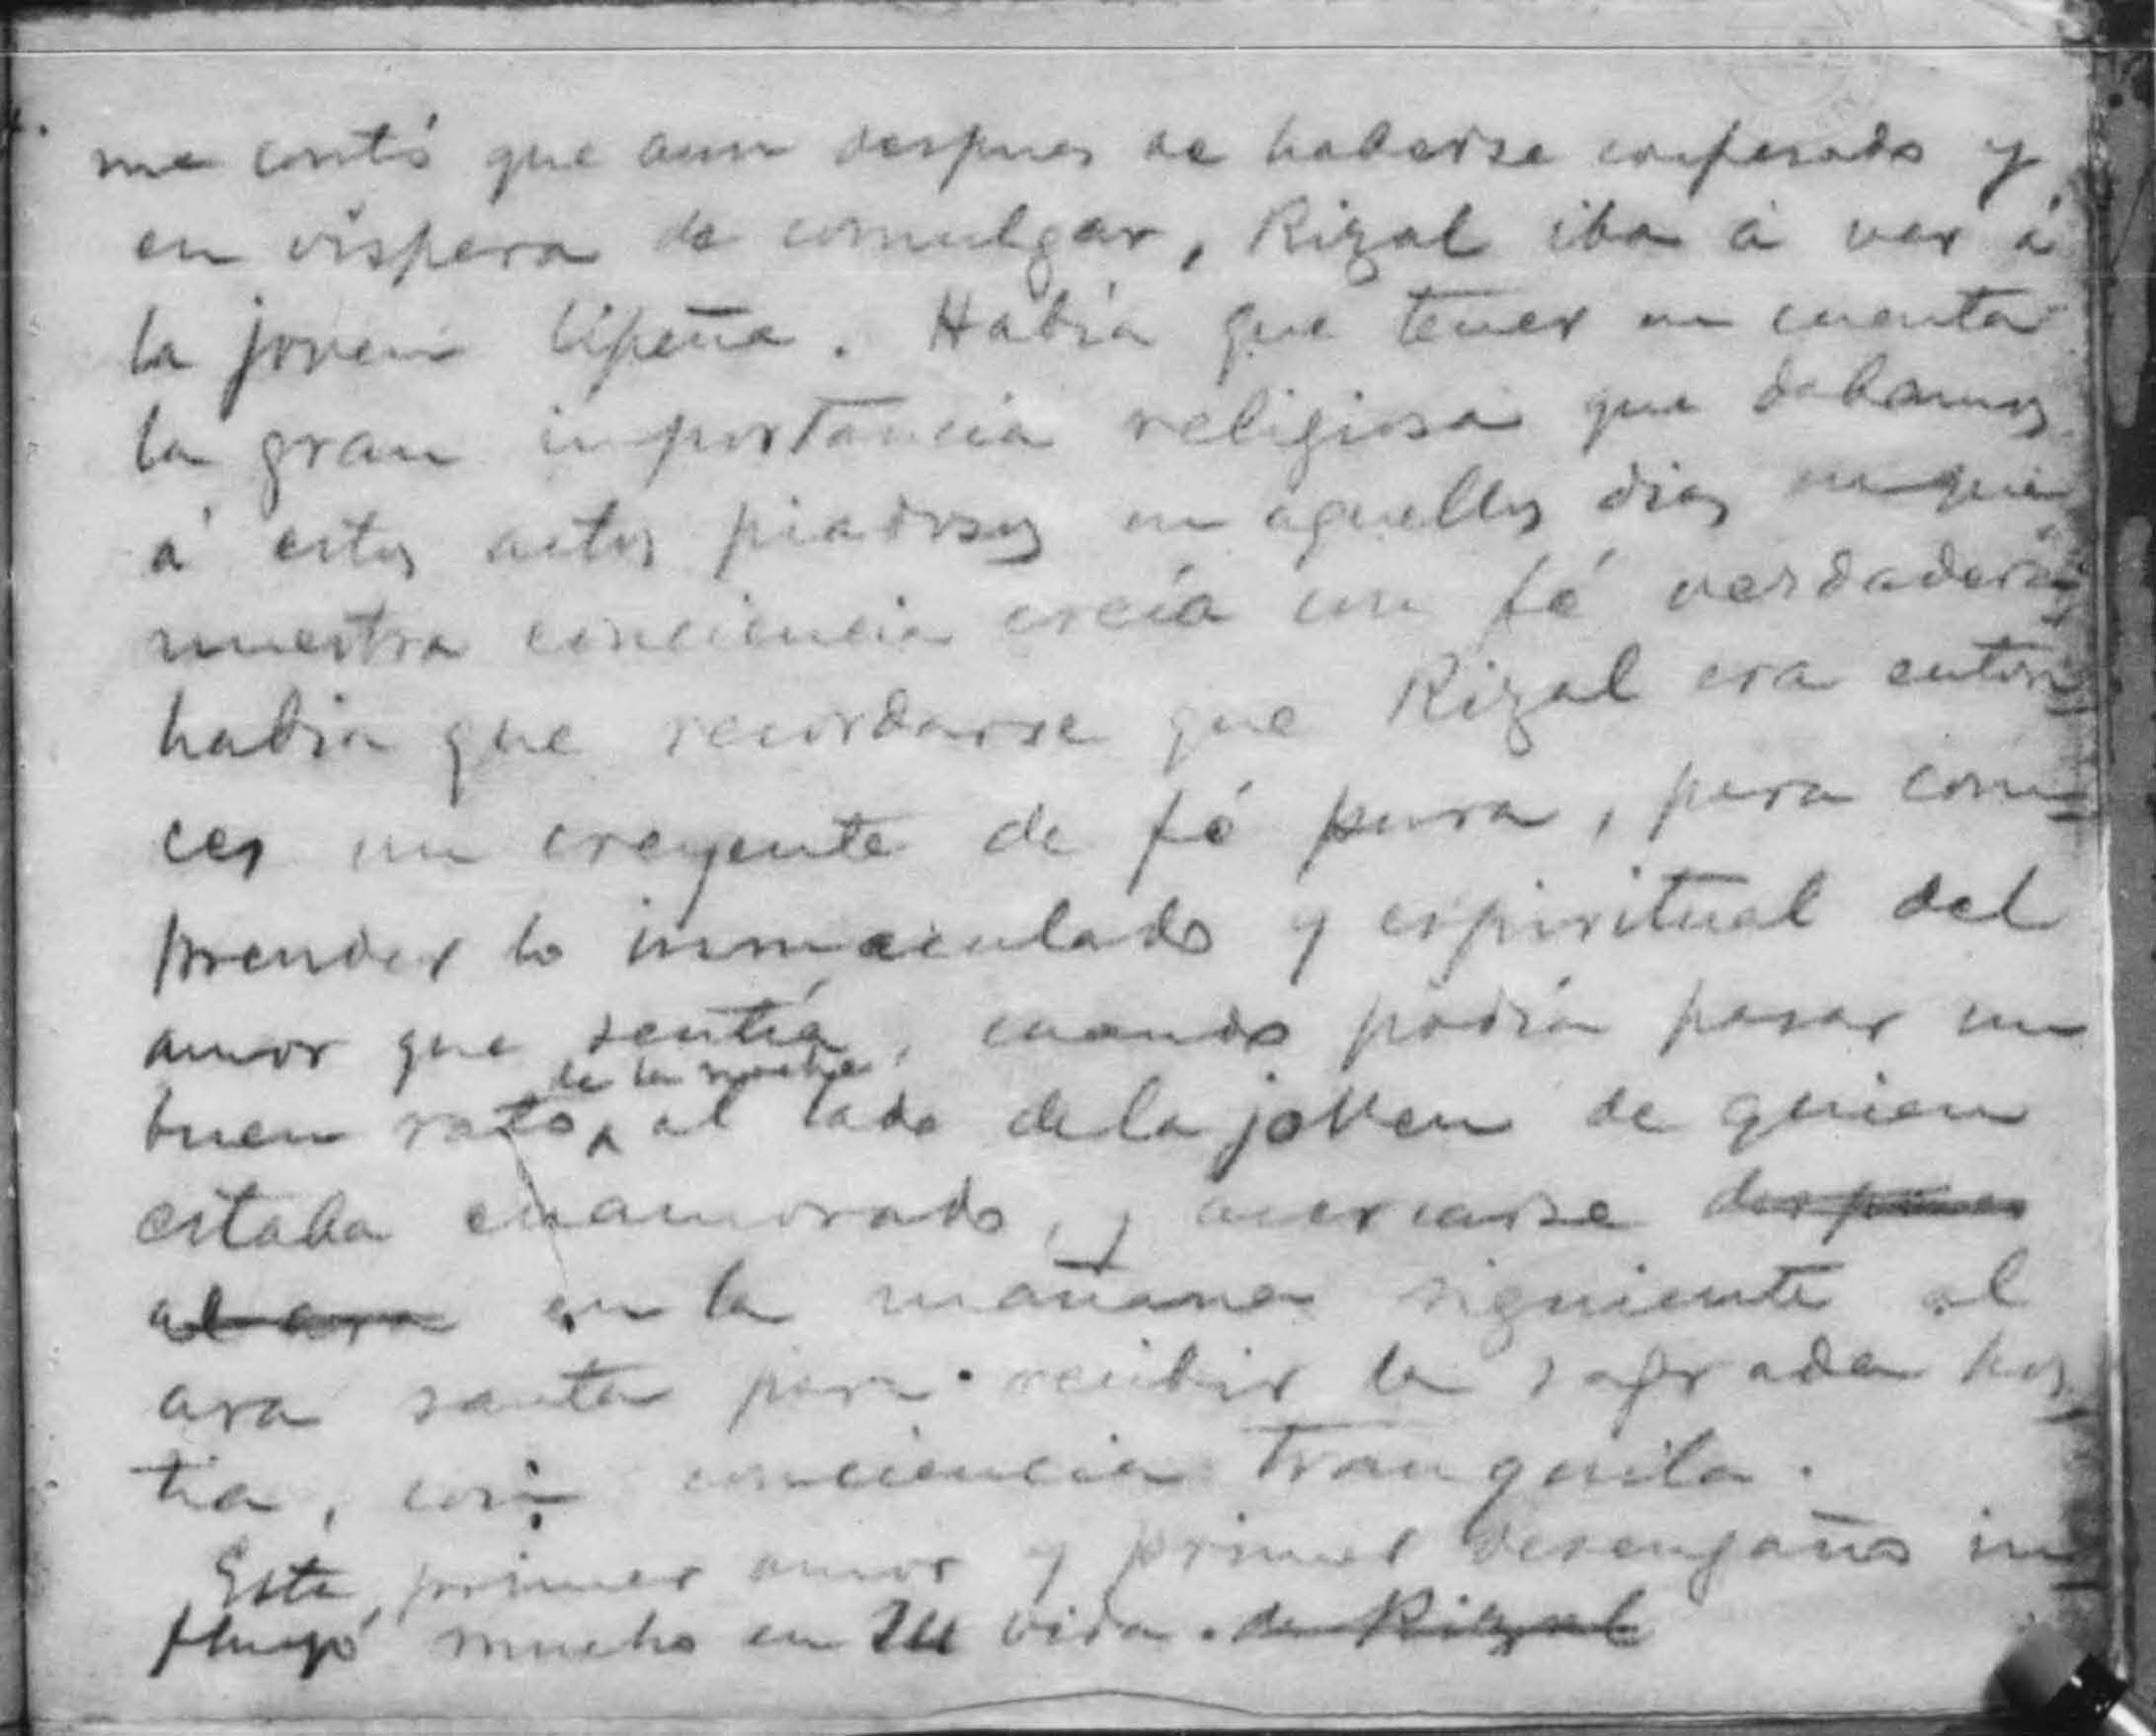 me contó que aun despues de haberse confesado y
en víspera de comulgar, Rizal iba á ver á
la joven lipeña. Había que tener en cuenta
la gran importancia religiosa que dabamos
á estos actos piadosos en aquellos dias en que
nuestra conciencia creía con fé verdadera,
habia que recordarse que Rizal era enton-
ces un creyente de fé pura, para com-
prender lo inmaculado y espiritual del
amor que sentía, cuando podía pasar un
de la noche
buen rato al lado de la joven de quien
estaba enamorado, y acercarse despues
al ara en la mañana siguiente al
ara santa para recibir la sagrada hos-
tia, con conciencia tranquila.
Este, primer amor y primer desengaño in-
fluyó mucho en su vida. de Rizal